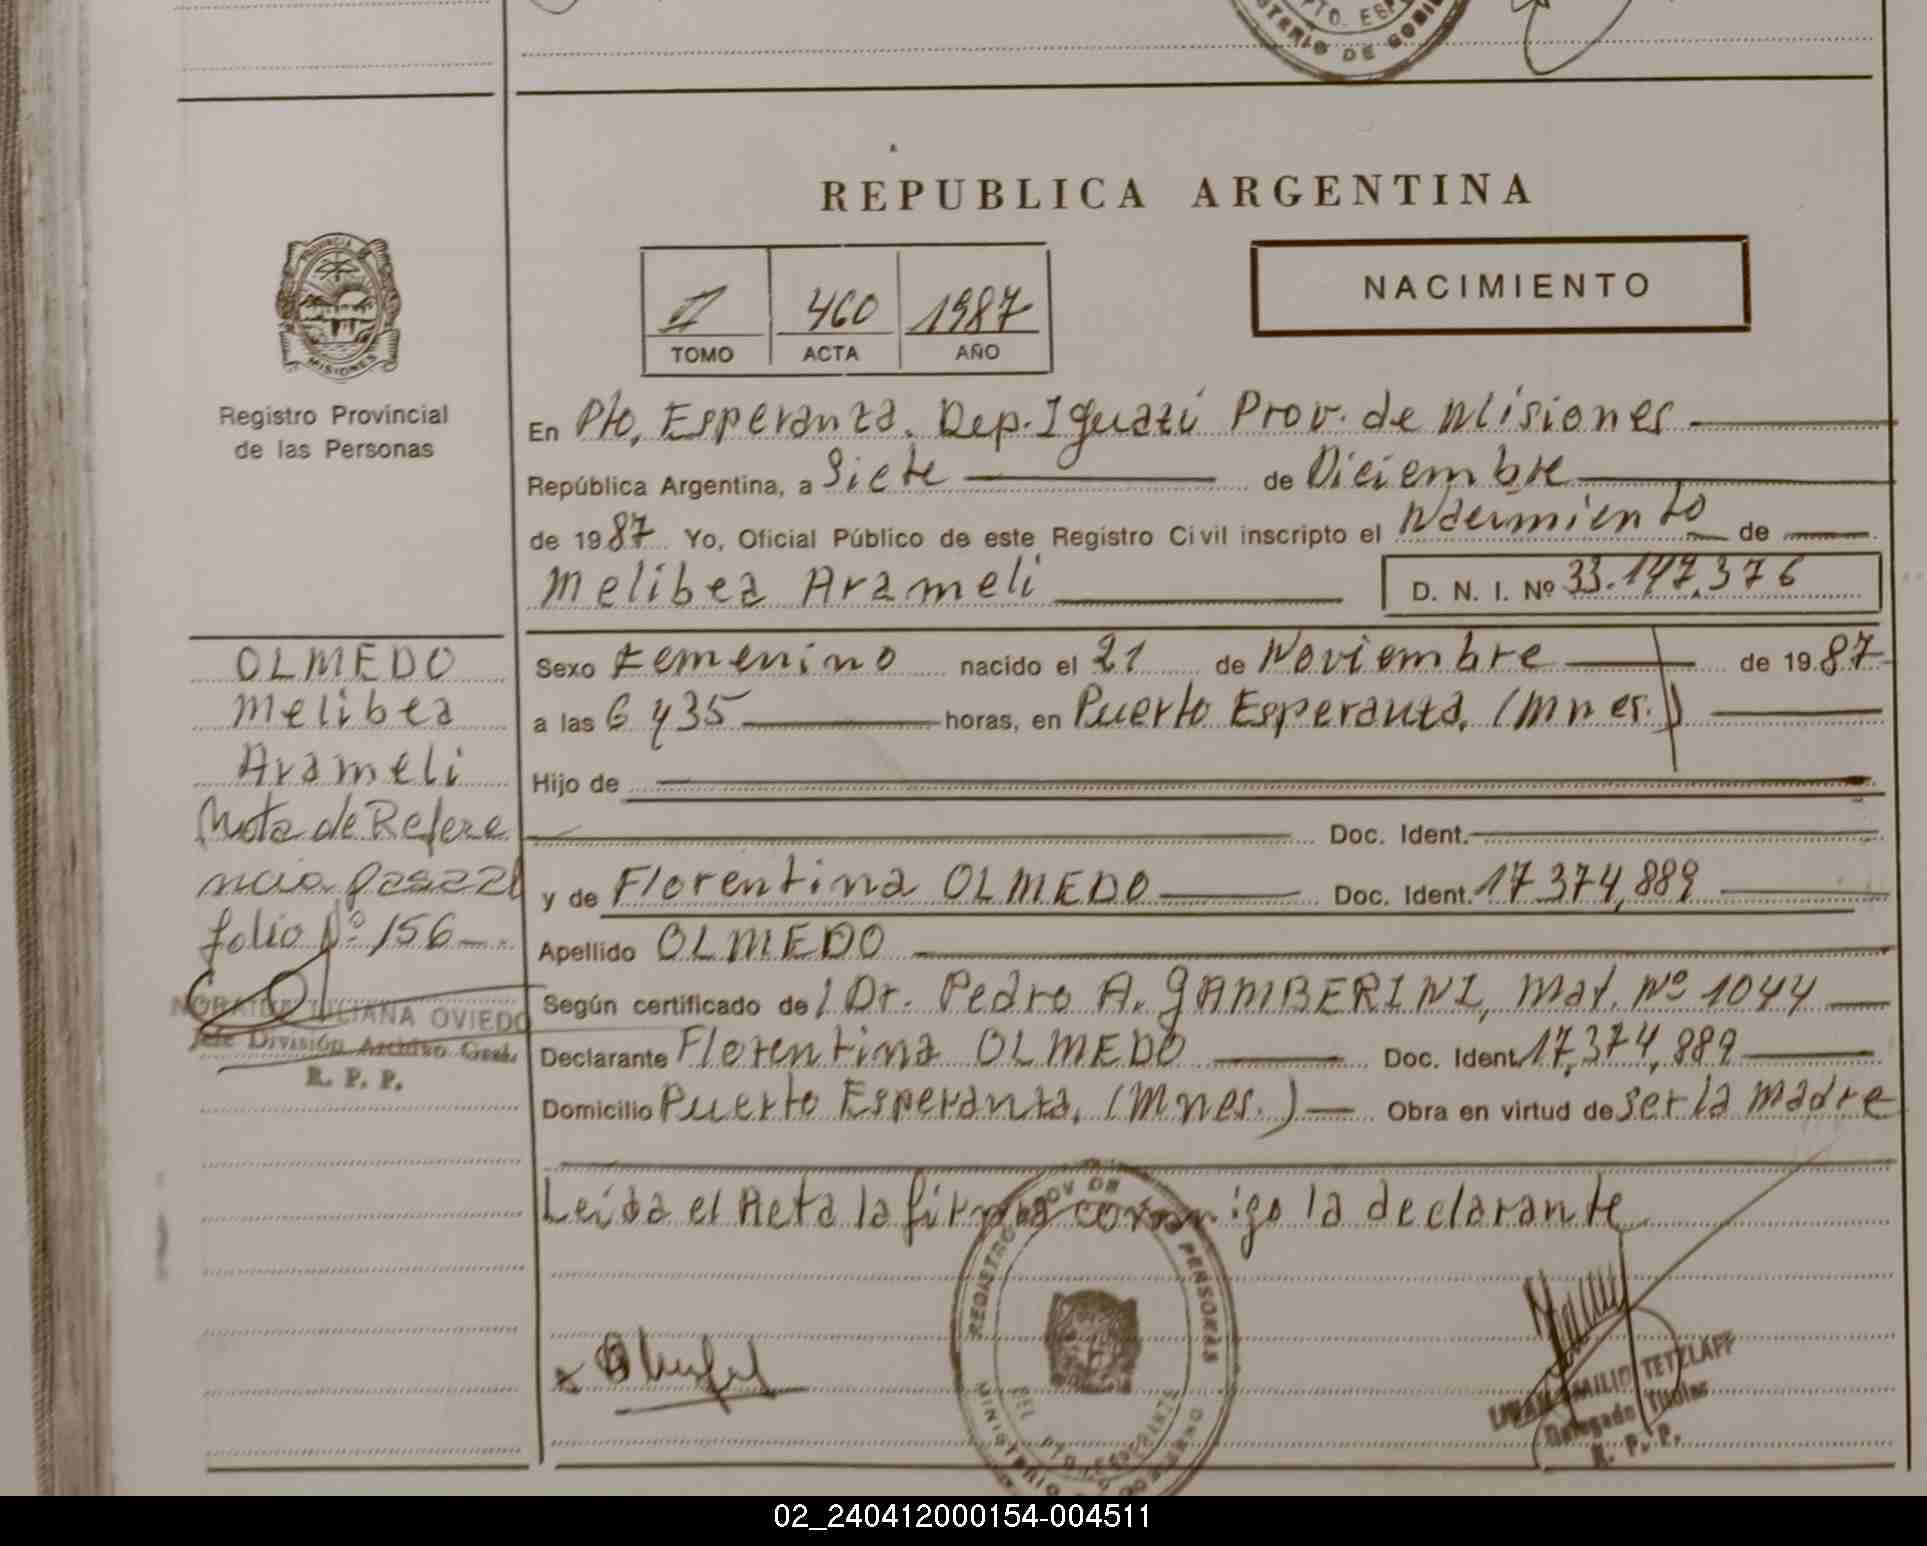 PTO. ESP
STERIO DE GOBIE
REPUBLICA ARGENTINA
PROVINCIA DE
MISIONES
NACIMIENTO
II 460 1987
TOMO ACTA AÑO
Registro Provincial
de las Personas
En Pto, Esperanza. Dep. Iguazú Prov. de Misiones
República Argentina, a Siete de Diciembre
de 1987 Yo, Oficial Público de este Registro Civil inscripto el Nacimiento de
Melibea Arameli D. N. I. Nº 33.147.376
OLMEDO
Melibea
Arameli
Nota de Refere
ncia pasa al
folio Nº 156
LILIANA OVIEDO
Jefe División Archivo Gral.
R. P. P.
Sexo Femenino nacido el 21 de Noviembre de 1987
a las 6 y 35 horas, en Puerto Esperanza, (Mnes.)
Hijo de
Doc. Ident.
y de Florentina OLMEDO Doc. Ident. 17.374,889
Apellido OLMEDO
Según certificado de / Dr. Pedro A. GAMBERINI, Mat. Nº 1044
Declarante Florentina OLMEDO Doc. Ident. 17,374,889
Domicilio Puerto Esperanza, (Mnes.) Obra en virtud de ser la madre
Leída el Acta la firma conmigo la declarante
REGISTRO PROV DE PERSONAS
MINISTERIO DE GOBIERNO
DEL PTO. ESPERANZA
EMILIO TETZLAFF
Delegado Titular
R. P. P.
02_240412000154-004511